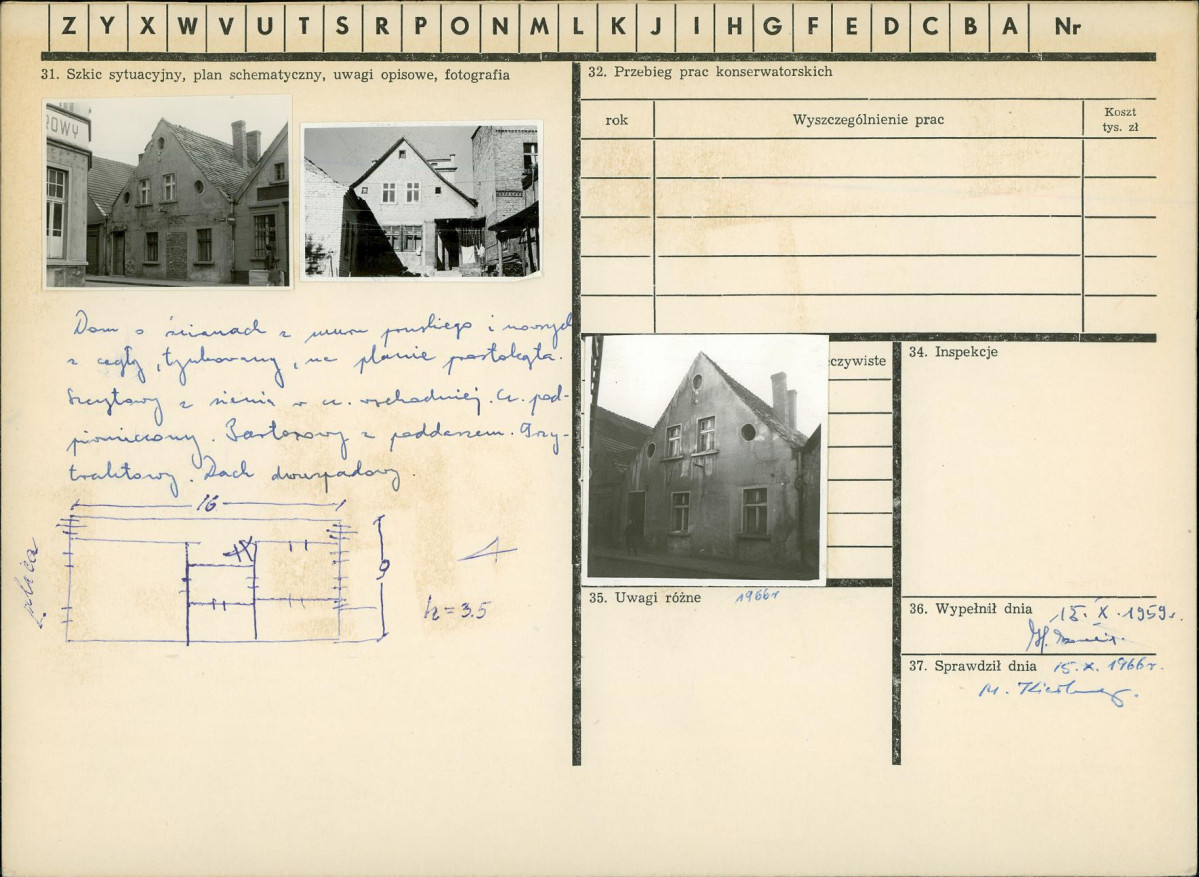 Z Y X W V U T S R P O N M L K J I H G F E D C B A Nr
31. Szkic sytuacyjny, plan schematyczny, uwagi opisowe, fotografia
ROWY
Dom o ścianach z muru pruskiego i nowszych
z cegły, tynkowany, na planie prostokąta.
Szczytowy z sienią w cz. wschodniej. Cz. pod-
piwniczony. Parterowy z poddaszem. Trzy-
traktowy. Dach dwuspadowy.
16
ulica
9
h = 3.5
32. Przebieg prac konserwatorskich
rok
Wyszczególnienie prac
Koszt
tys. zł
czywiste
34. Inspekcje
35. Uwagi różne
1966r
36. Wypełnił dnia 15. X. 1959r.
37. Sprawdził dnia 15. X. 1966r.
M.